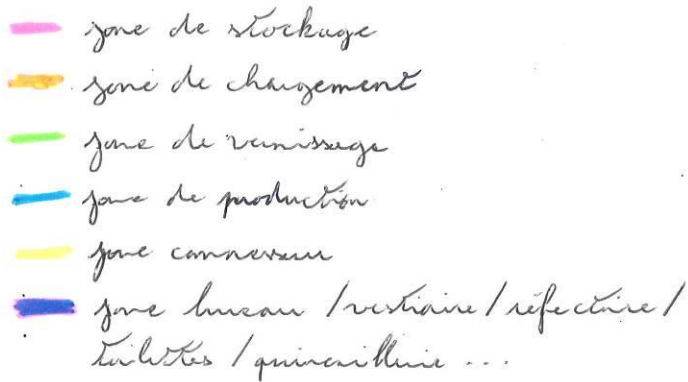 zone de stockage
zone de chargement
zone de vernissage
zone de production
zone compresseur
zone bureau / vestiaire / réfectoire /
toilettes / quincaillerie ...